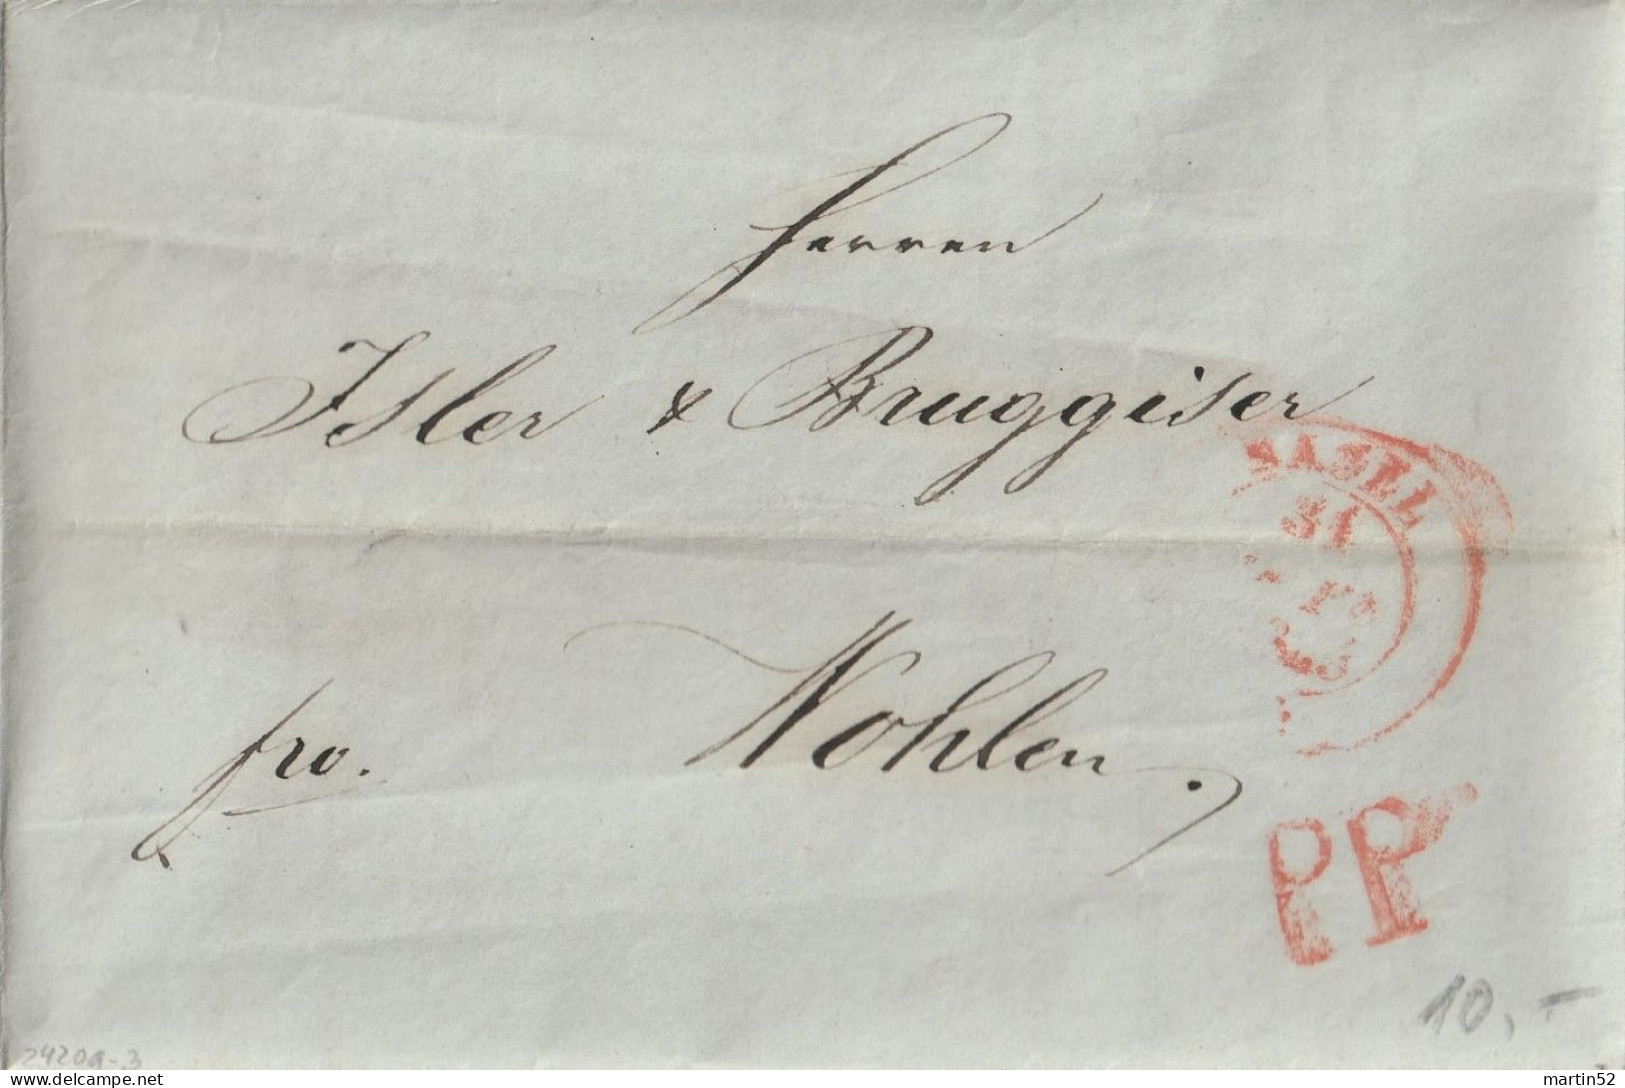 Herren
Isler & Bruggiser
BASEL
31
fro. Wohlen.
PP
10.-
2420a-3
www.delcampe.net
martin52